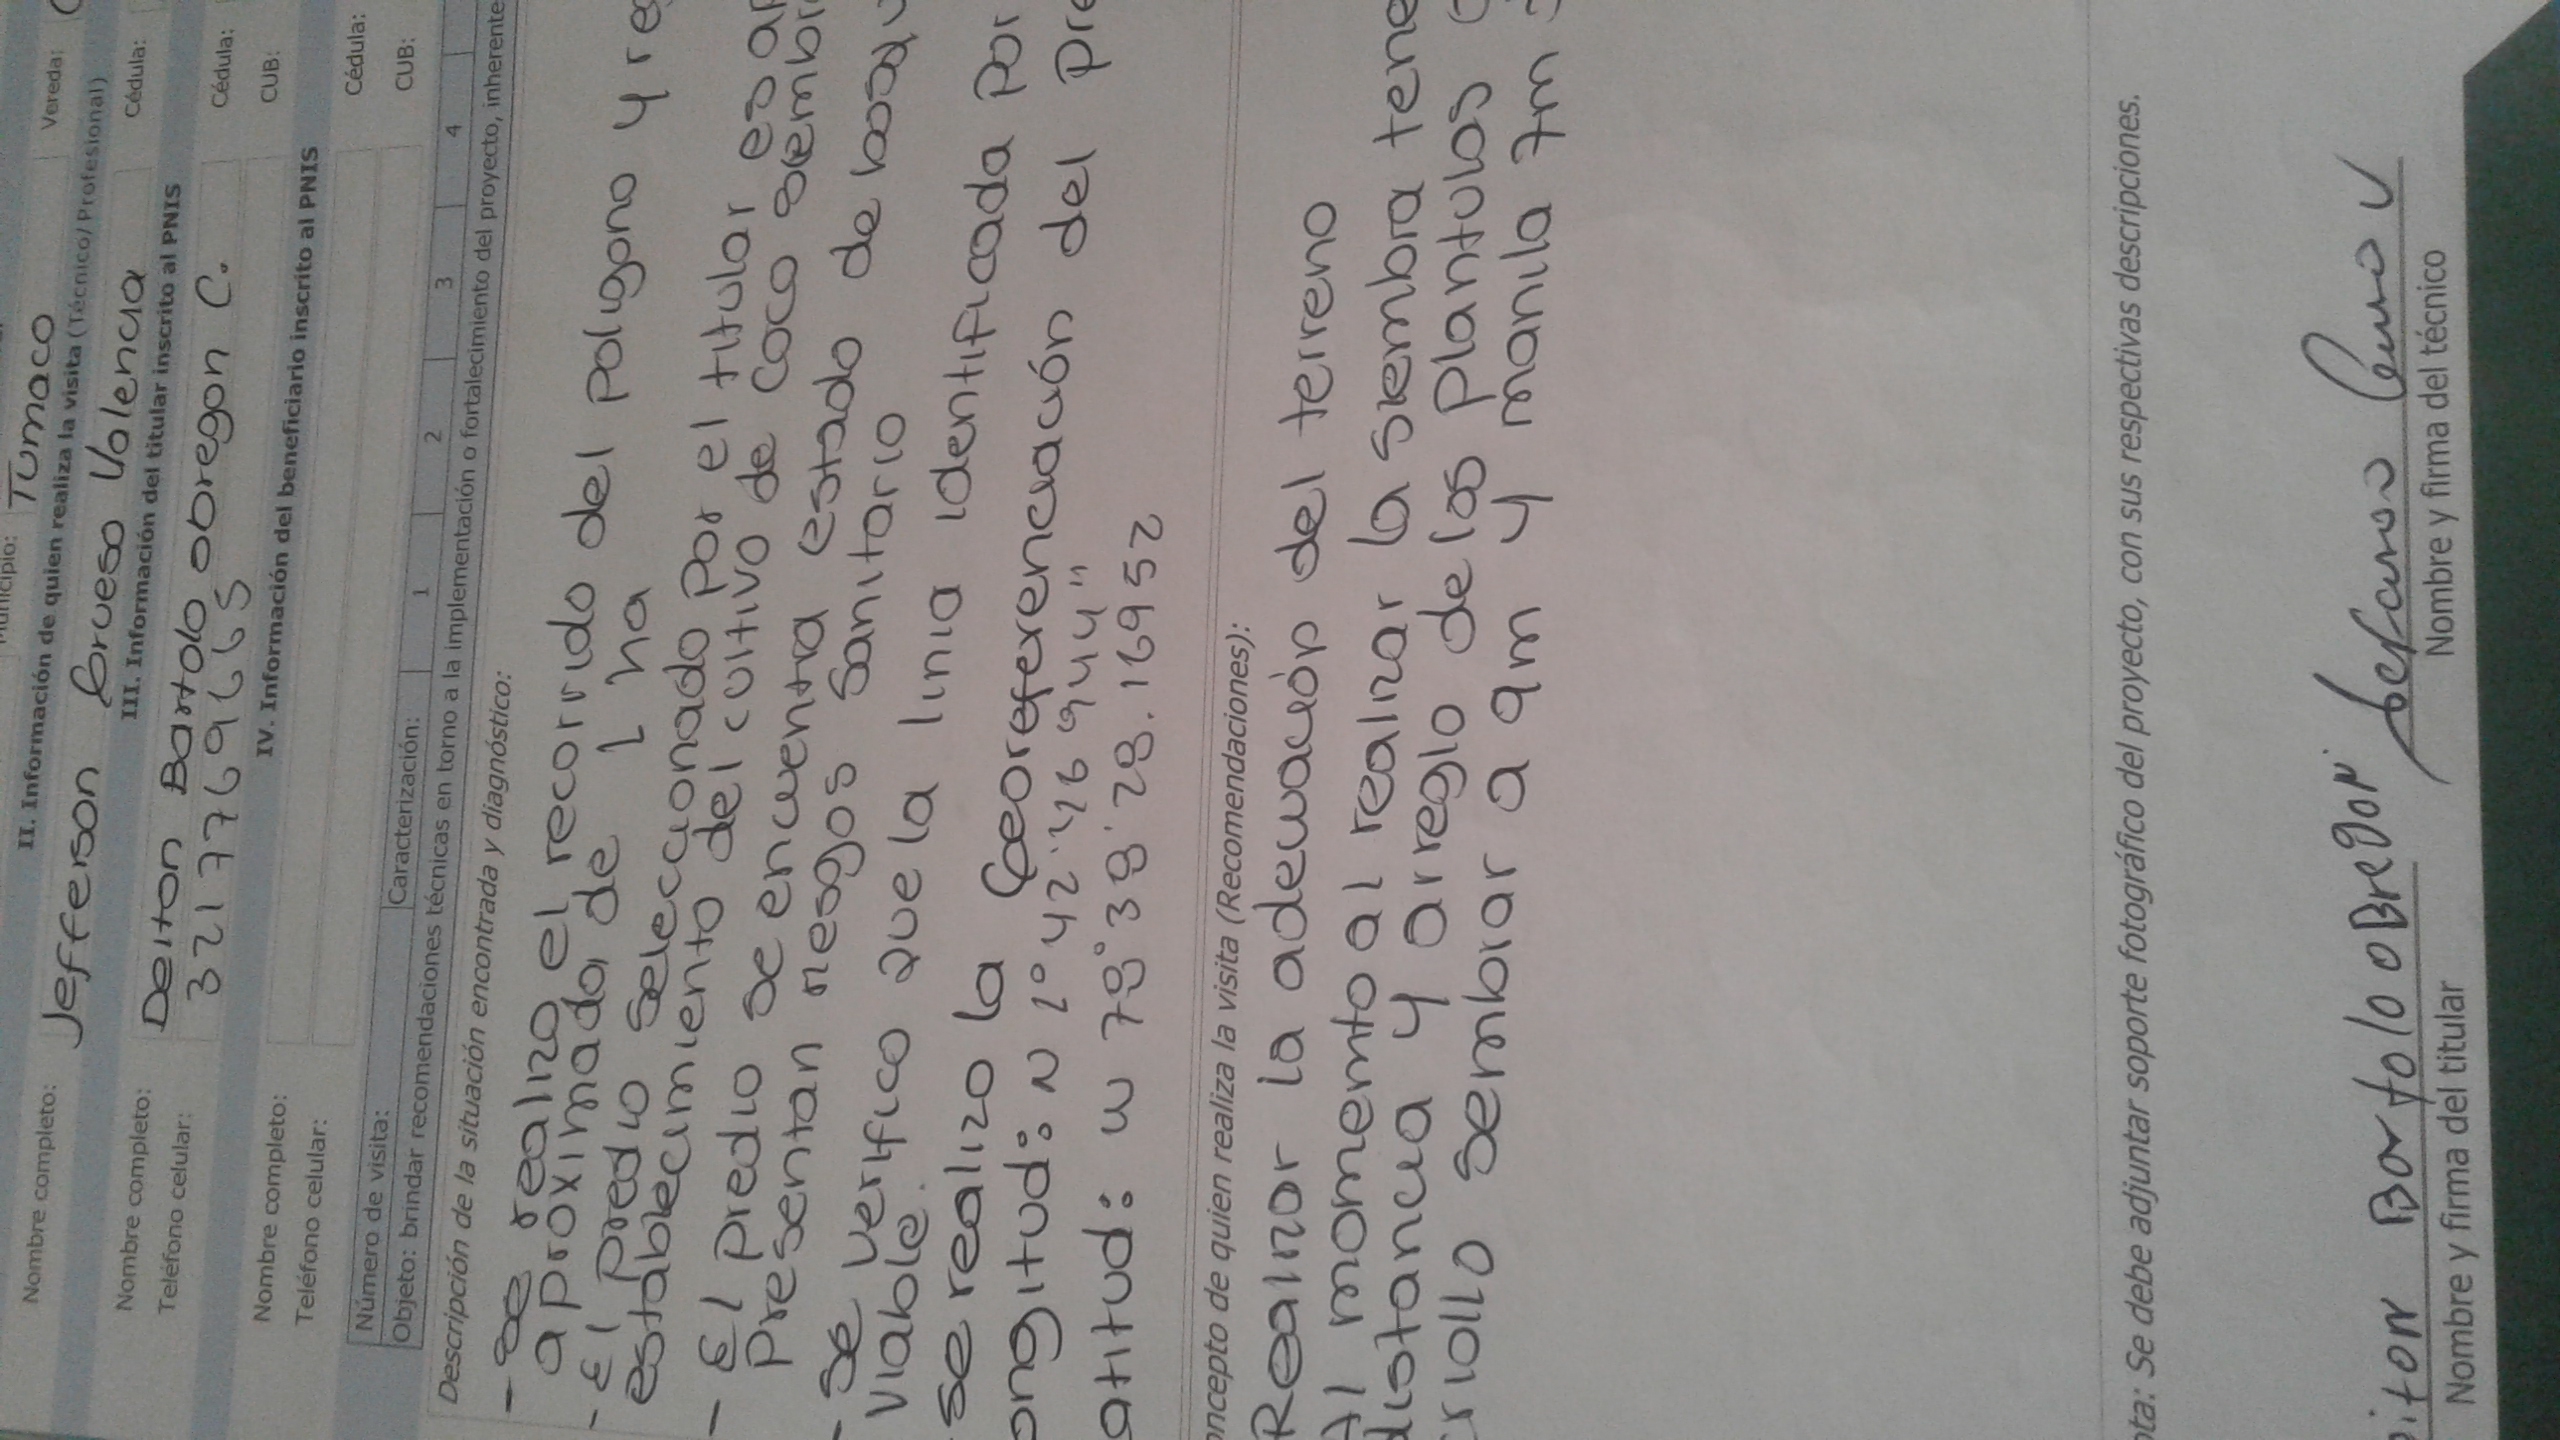 Municipio: Tumaco Vereda:
II. Información de quien realiza la visita (Técnico/Profesional)
Nombre completo: Jefferson Grueso Valencia Cédula:
III. Información del titular inscrito al PNIS
Nombre completo: Deiton Bartolo obregon C. Cédula:
Teléfono celular: 3217769665 CUB:
IV. Información del beneficiario inscrito al PNIS
Nombre completo: Cédula:
Teléfono celular: CUB:
Número de visita: Caracterización: 1 2 3 4
Objeto: brindar recomendaciones técnicas en torno a la implementación o fortalecimiento del proyecto, inherente
Descripción de la situación encontrada y diagnóstico:
- se realizo el recorrido del poligono y re
aproximada de 1 ha
- El predio seleccionado por el titular es
establecimiento del cultivo de coco sembr
- El predio se encuentra estado de bosqu
presentan riesgos sanitario
- se verifico que la linia identificada por
viable.
se realizo la Georeferenciación del pre
ongitud: N 1° 42'
atitud: w 78° 38' 28.16952
oncepto de quien realiza la visita (Recomendaciones):
Realizar la adecuación del terreno
Al momento al realizar la siembra tene
distancia y arreglo de las plantulas
criollo sembrar a 9m y manila 7m
ota: Se debe adjuntar soporte fotográfico del proyecto, con sus respectivas descripciones.
iton Bartolo oBregon
Nombre y firma del titular Nombre y firma del técnico